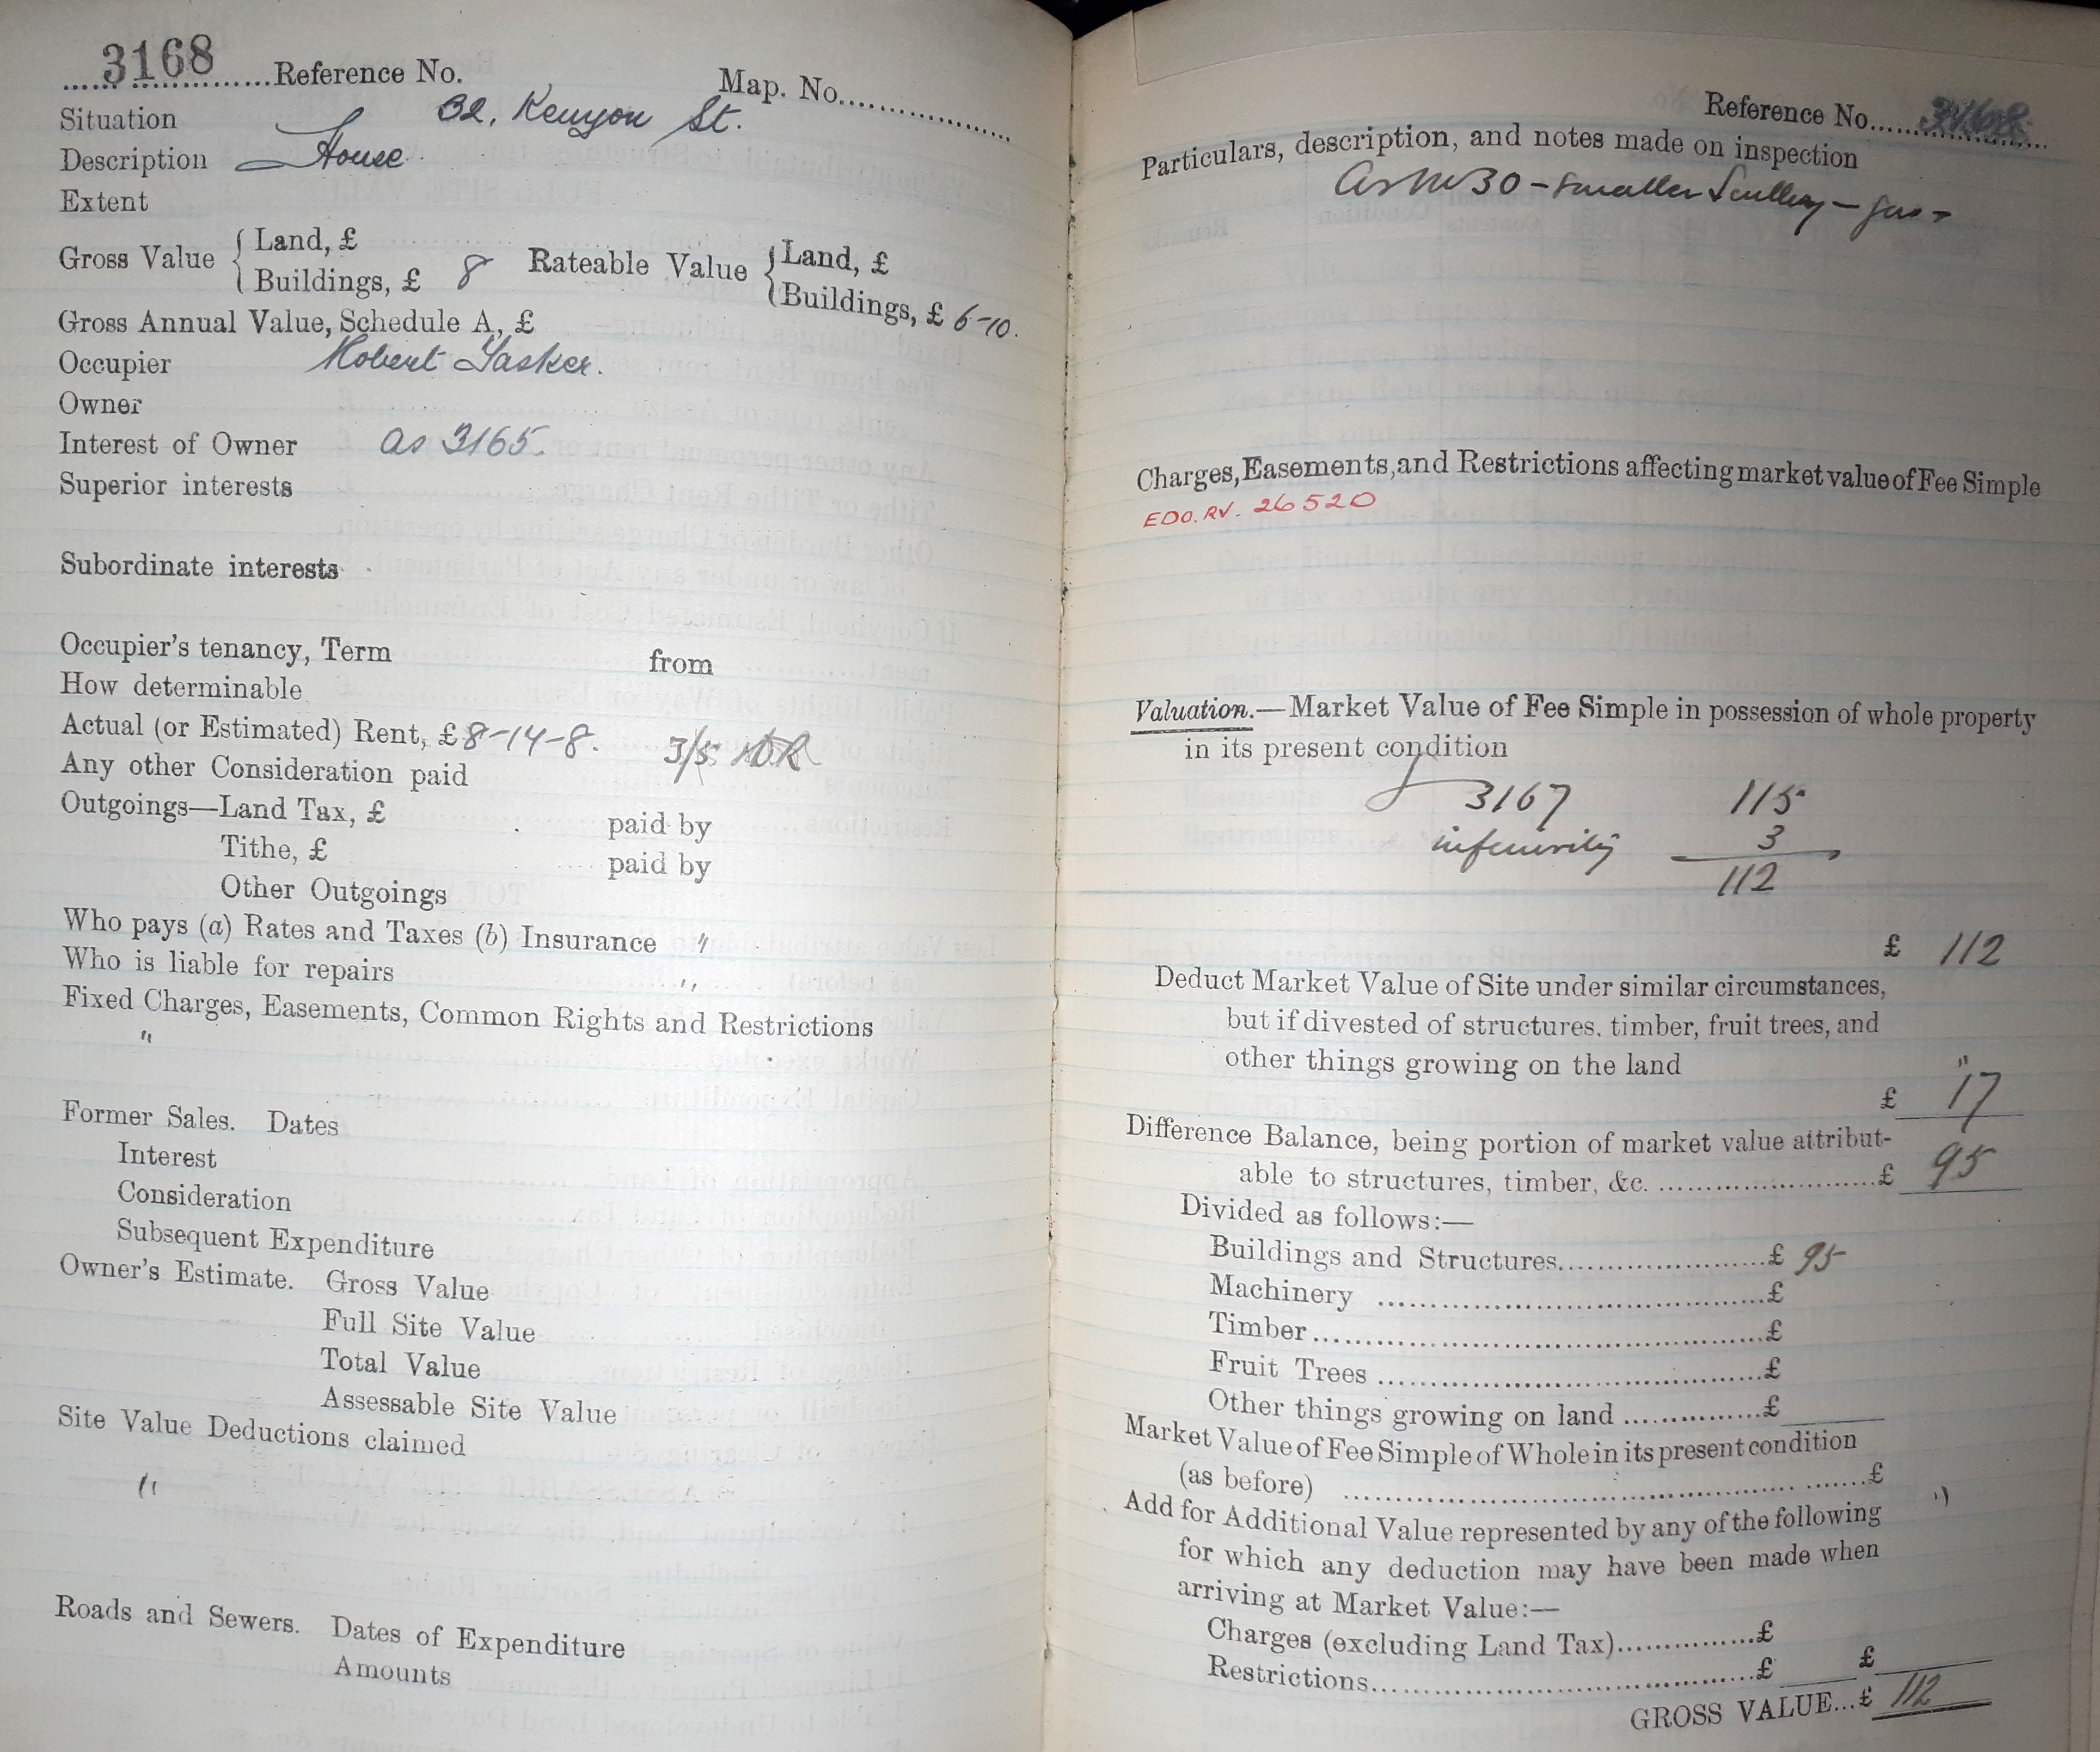 3168 Reference No. Map. No.
Situation 32, Kenyon St.
Description House
Extent
Gross Value { Land, £ Rateable Value { Land, £
Buildings, £ 8 Buildings, £ 6-10.
Gross Annual Value, Schedule A, £
Occupier Robert Tasker.
Owner
Interest of Owner as 3165.
Superior interests
Subordinate interests
Occupier's tenancy, Term from
How determinable
Actual (or Estimated) Rent, £ 8-14-8. 3/5
Any other Consideration paid
Outgoings—Land Tax, £ paid by
Tithe, £ paid by
Other Outgoings
Who pays (a) Rates and Taxes (b) Insurance "
Who is liable for repairs "
Fixed Charges, Easements, Common Rights and Restrictions
"
Former Sales. Dates
Interest
Consideration
Subsequent Expenditure
Owner's Estimate. Gross Value
Full Site Value
Total Value
Assessable Site Value
Site Value Deductions claimed
"
Roads and Sewers. Dates of Expenditure
Amounts
Reference No. 3168
Particulars, description, and notes made on inspection
As No 30 - smaller Scullery - gas -
Charges, Easements, and Restrictions affecting market value of Fee Simple
EDO. RV. 26520
Valuation.—Market Value of Fee Simple in possession of whole property
in its present condition
3167 115
inferiority 3
112
£ 112
Deduct Market Value of Site under similar circumstances,
but if divested of structures. timber, fruit trees, and
other things growing on the land "
£ 17
Difference Balance, being portion of market value attribut-
able to structures, timber, &c. £ 95
Divided as follows:—
Buildings and Structures £ 95
Machinery £
Timber £
Fruit Trees £
Other things growing on land £
Market Value of Fee Simple of Whole in its present condition
(as before) £
Add for Additional Value represented by any of the following "
for which any deduction may have been made when
arriving at Market Value:—
Charges (excluding Land Tax) £
Restrictions £ £
GROSS VALUE...£ 112